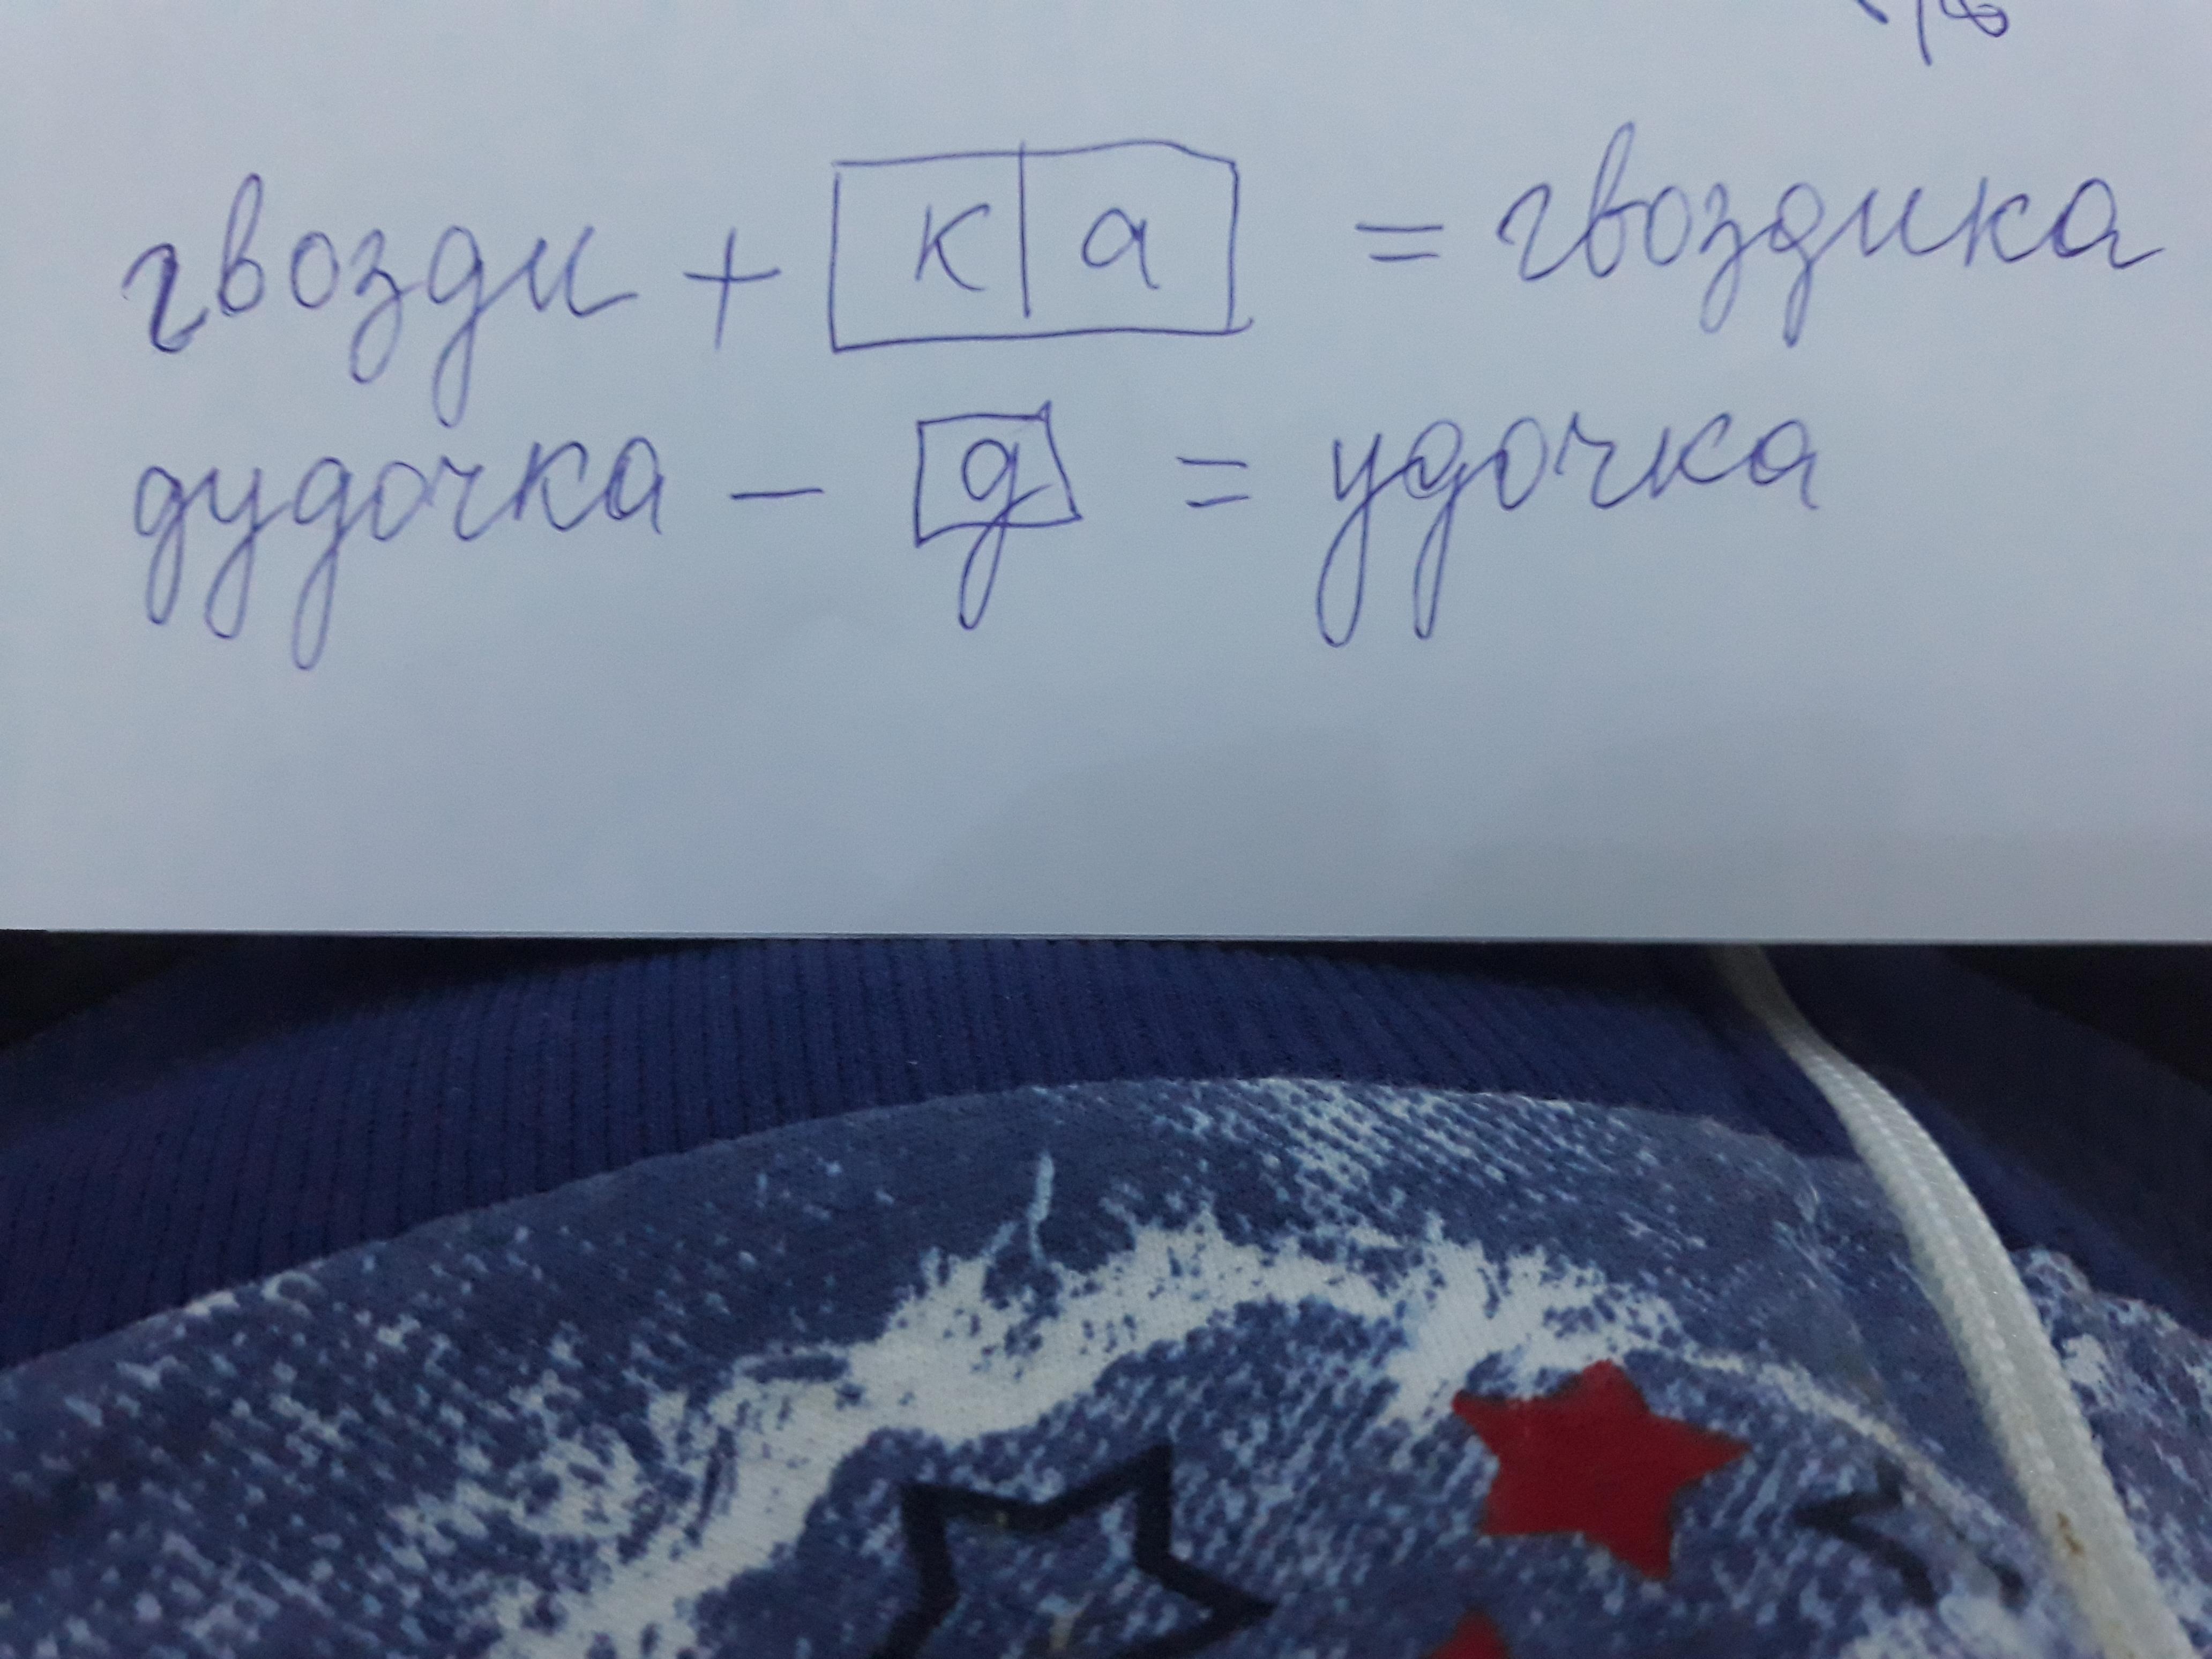 гвозди + к а = гвоздика
дудочка - д = удочка